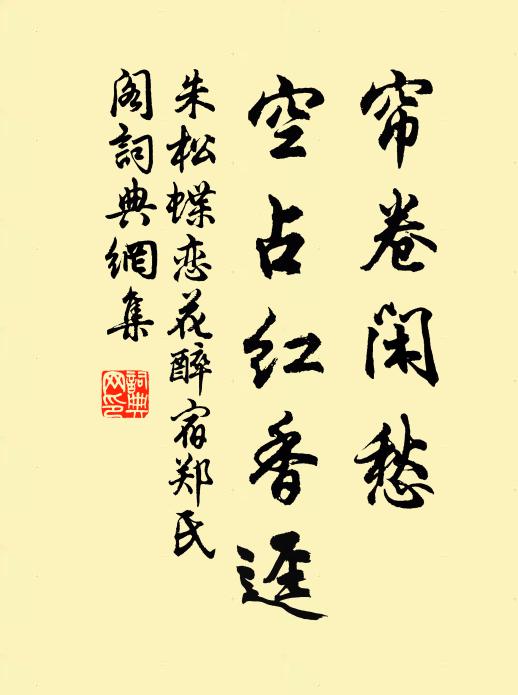 帘卷闲愁
空占红香径
朱松蝶恋花醉宿郑氏
阁詞典網集
詞典
网印